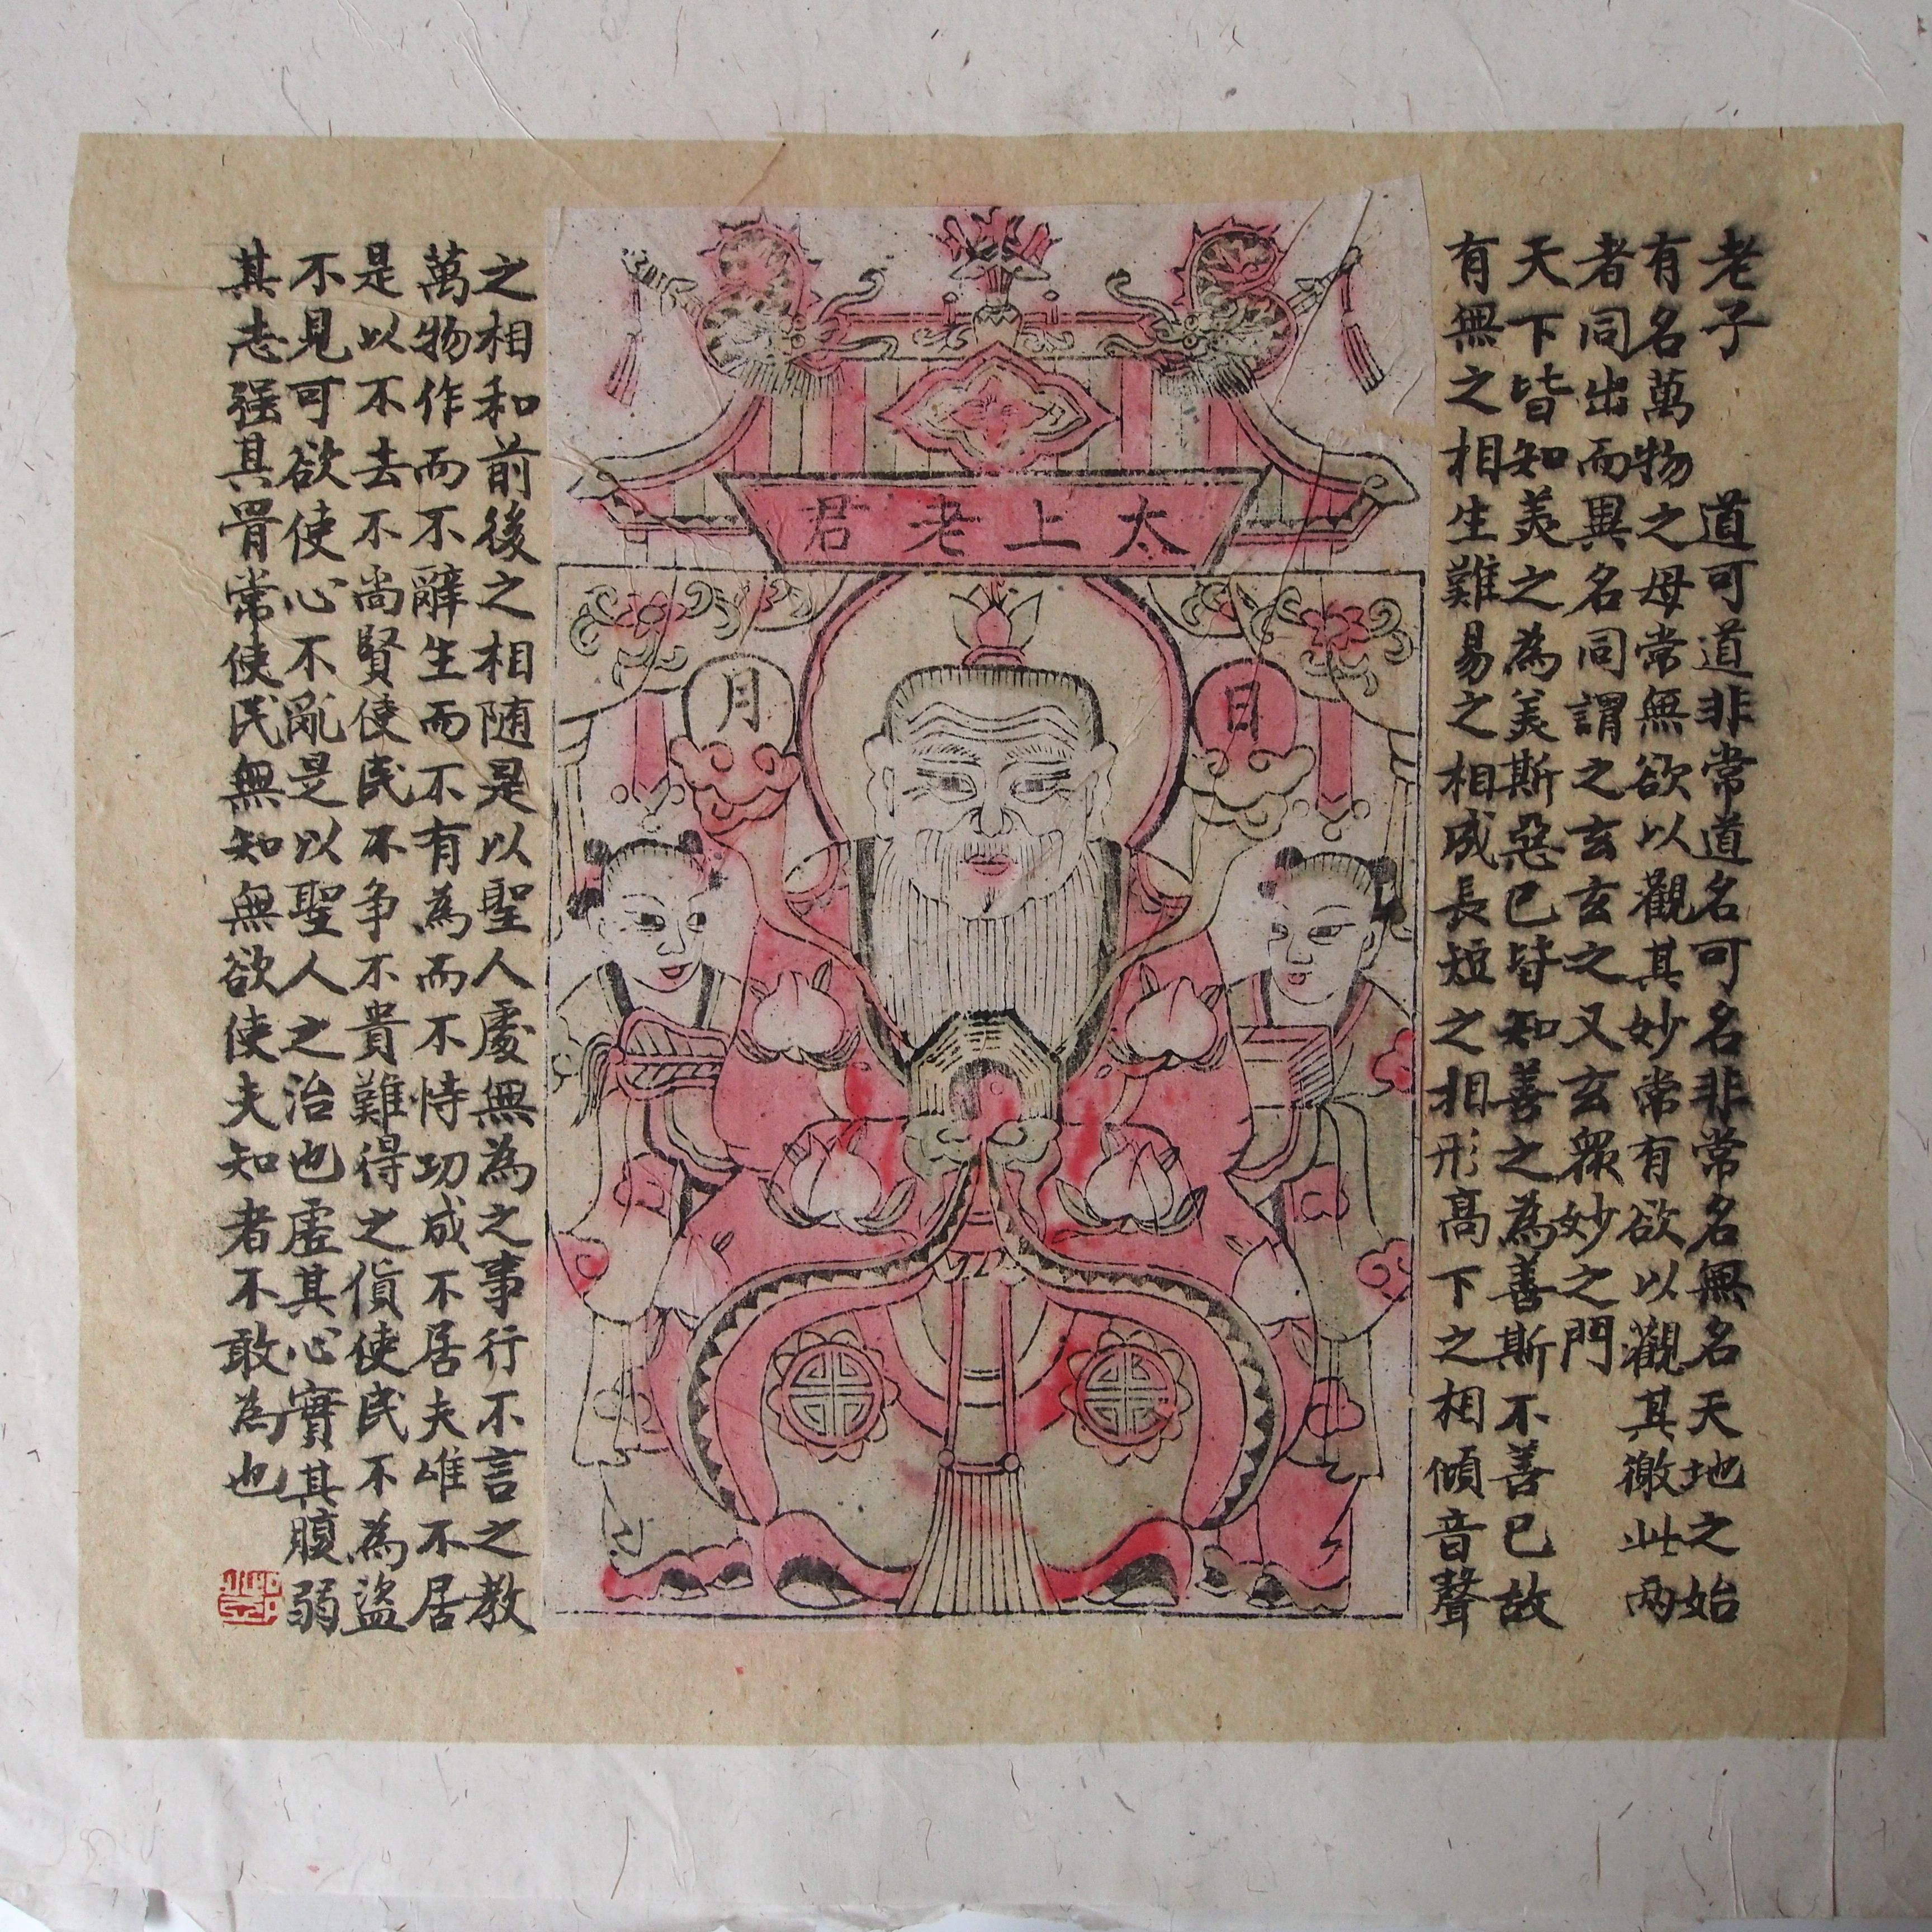 老子 道可道非常道名可名非常名無名天地之始
有名萬物之母常無欲以觀其妙常有欲以觀其徼此两
者同出而異名同謂之玄玄之又玄衆妙之門
天下皆知美之為美斯惡已皆知善之為善斯不善已故
有無之相生難易之相成長短之相形高下之相傾音聲
太上老君
日
月
之相和前後之相随是以聖人處無為之事行不言之教
萬物作而不辭生而不有為而不恃功成不居夫唯不居
是以不去不尚賢使民不争不貴難得之貨使民不為盜
不見可欲使心不亂是以聖人之治也虛其心實其腹弱
其志强其骨常使民無知無欲使夫知者不敢為也